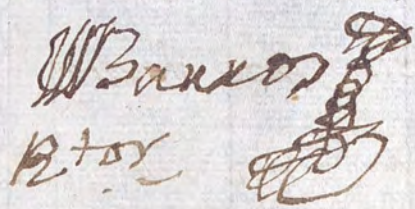 Barros
Rtor